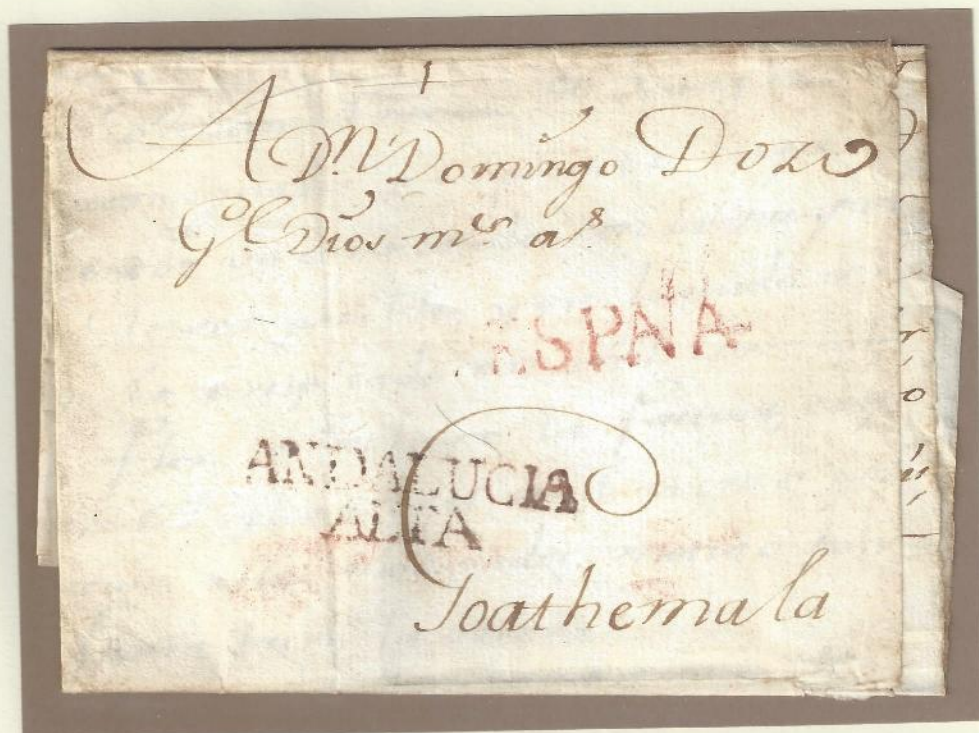 A Dn Domingo Dozo
Gl Dios ms as
ESPAÑA
ANDALUCIA
ALTA
Goathemala